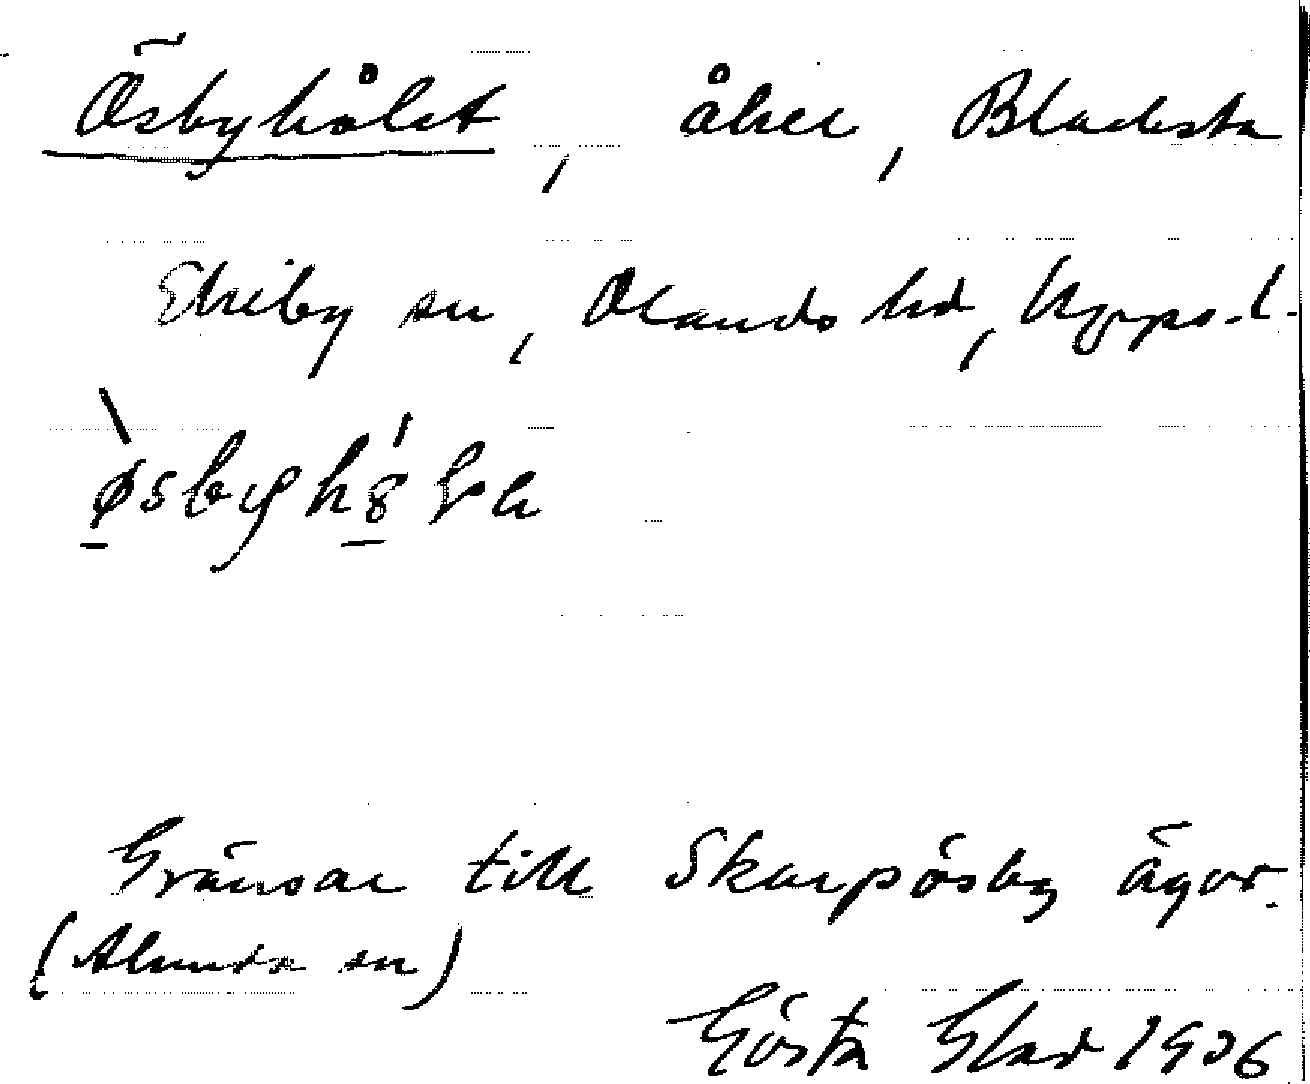 Ösbyhålet, åker, Bladsta
Ekeby sn, Olands hd, Upps. l.
Gränsar till Skarpösby ägor.
(Alunda sn)
Gösta Glad 1936